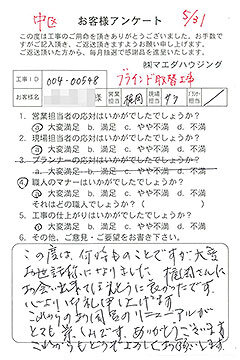 中区 お客様アンケート 5/31
この度は工事のご用命を頂きありがとうございました。お手数で
すがご記入頂き、ご返送頂きますようお願い申し上げます。
ご返送頂いた方から、毎月抽選で感謝品を進呈いたします。
㈱マエダハウジング
工事ID 004-00548 ブラインド取替工事
お客様名 様 営業担当 現場担当
1. 営業担当者の応対はいかがでしたでしょうか?
ⓐ 大変満足 b. 満足 c. やや不満 d. 不満
2. 現場担当者の応対はいかがでしたでしょうか?
ⓐ 大変満足 b. 満足 c. やや不満 d. 不満
3. プランナーの応対はいかがでしたでしょうか?
a. 大変満足 b. 満足 c. やや不満 d. 不満
4. 職人のマナーはいかがでしたでしょうか?
ⓐ 大変満足 b. 満足 c. やや不満 d. 不満
それはどの職人でしょうか?( )
5. 工事の仕上がりはいかがでしたでしょうか?
ⓐ 大変満足 b. 満足 c. やや不満 d. 不満
6. その他、ご意見・ご要望をお書き下さい。
この度は、何時ものことですが大変
お世話様になりました。
お会い出来て本当に良かったです。
心よりお礼申し上げます
これからのお風呂のリニューアルが
とても楽しみです。ありがとうございます
これからもどうぞよろしくお願いします